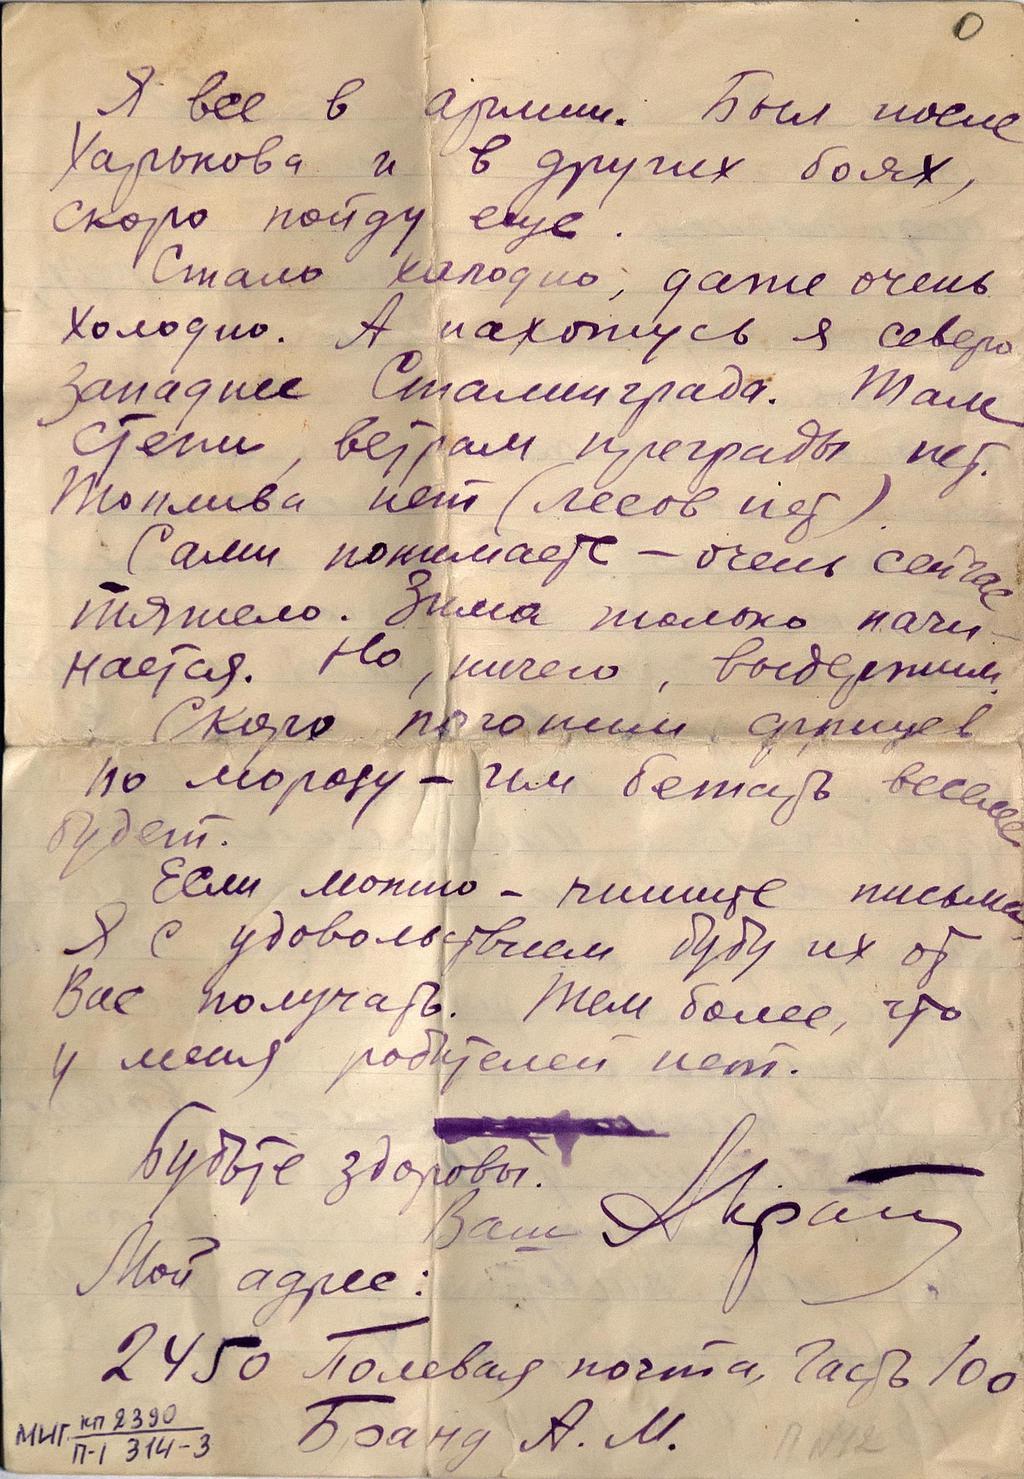 0
Я все в армии. Был после
Харькова и в других боях,
скоро пойду еще.
Стало холодно, даже очень
холодно. А нахожусь я северо
западнее Сталинграда. Там
степи, ветрам преграды нет.
Топлива нет (лесов нет).
Сами понимаете – очень сейчас
тяжело. Зима только начи-
нается. Но, ничего, выдержим.
Скоро погоним фрицев
по морозу – им бежать веселее
будет.
Если можно – пишите письма.
Я с удовольствием буду их от
Вас получать. Тем более, что
у меня родителей нет.
Будьте здоровы.
Ваш
Мой адрес:
2450 Полевая почта, часть 100
Бранд А. М.
МИГ кп 2390
П-1 314-3
П №12